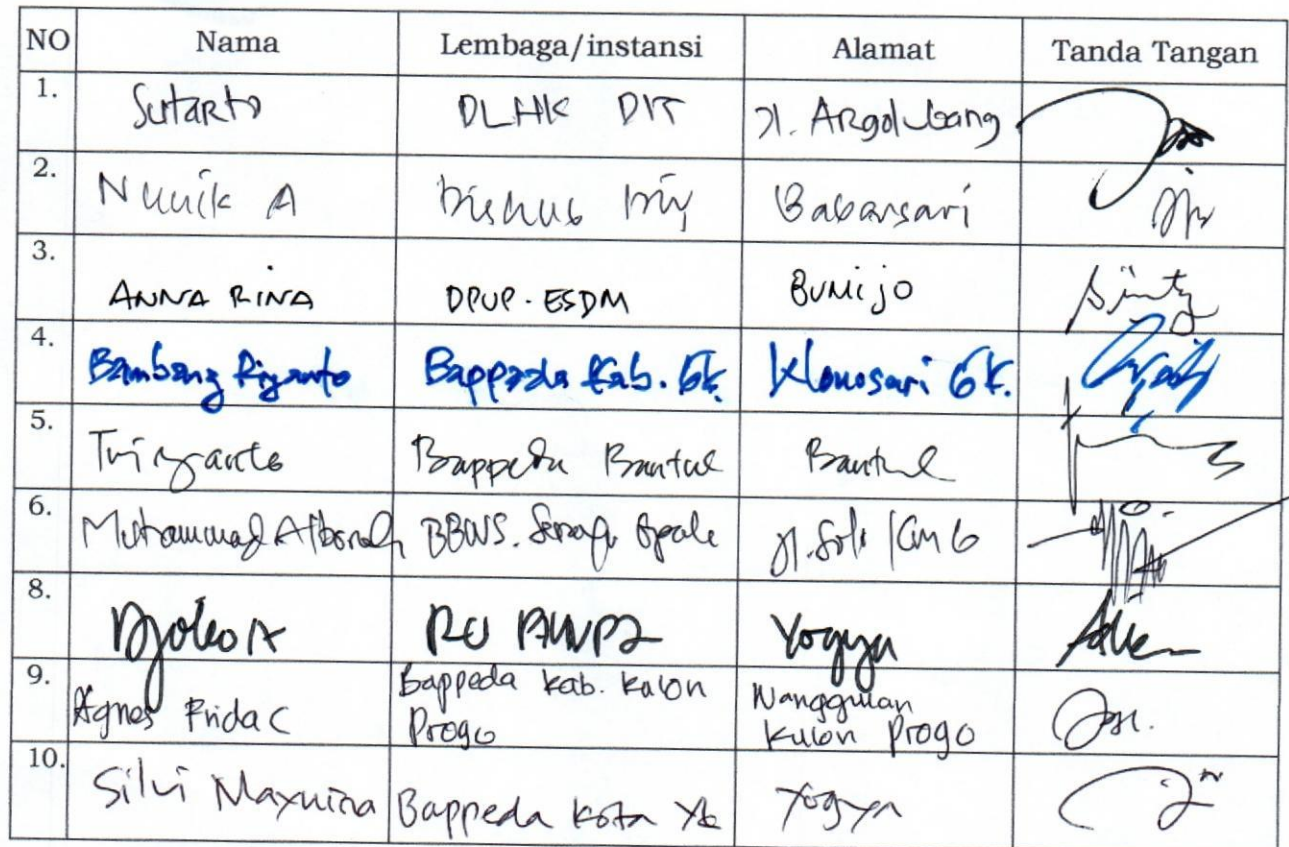 NO Nama Lembaga/instansi Alamat Tanda Tangan
1. Sutarto DLHK DIY Jl. Argolubang
2. Nunik A Dishub DIY Babarsari
3. ANNA RINA DPUP-ESDM BUMIJO
4. Bambang Riyanto Bappeda Kab. GK. Wonosari GK.
5. Triyanto Bappeda Bantul Bantul
6. Muhammad BBWS. Serayu Opak Jl. Solo Km 6
8. Djoko A Yogya
9. Agnes Frida C Bappeda Kab. Kulon
Progo Nanggulan
Kulon Progo
10. Silvi Bappeda Kota Yk Yogya